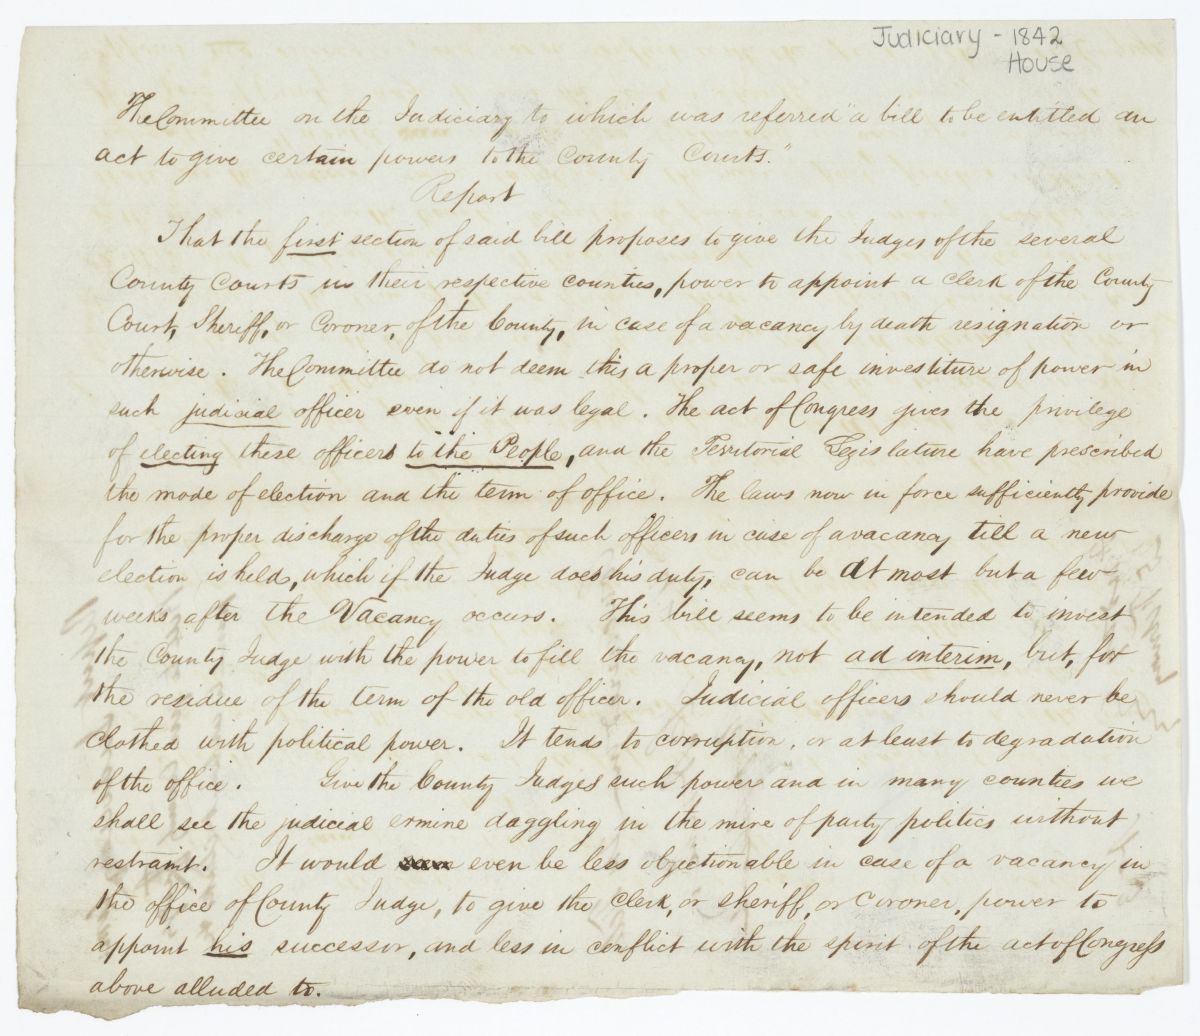 Judiciary - 1842
House
The Committee on the Judiciary to which was referred "a bill to be entitled an
act to give certain powers to the County Courts."
Report
That the first section of said bill proposes to give the Judges of the several
County Courts in their respective counties, power to appoint a clerk of the County
Court, Sheriff, or Coroner, of the County, in case of a vacancy by death resignation or
otherwise. The Committee do not deem this a proper or safe investiture of power in
such judicial officer even if it was legal. The act of Congress gives the privilege
of electing these officers to the People, and the Territorial Legislature have prescribed
the mode of election and the term of office. The laws now in force sufficiently provide
for the proper discharge of the duties of such officers in case of a vacancy till a new
election is held, which if the Judge does his duty, can be at most but a few
weeks after the Vacancy occurs. This bill seems to be intended to invest
the County Judge with the power to fill the vacancy, not ad interim, but, for
the residue of the term of the old officer. Judicial officers should never be
clothed with political power. It tends to corruption, or at least to degradation
of the office. Give the County Judges such power and in many counties we
shall see the judicial ermine daggling in the mire of party politics without
restraint. It would even be less objectionable in case of a vacancy in
the office of County Judge, to give the Clerk, or sheriff, or Coroner, power to
appoint his successor, and less in conflict with the spirit of the act of Congress
above alluded to.